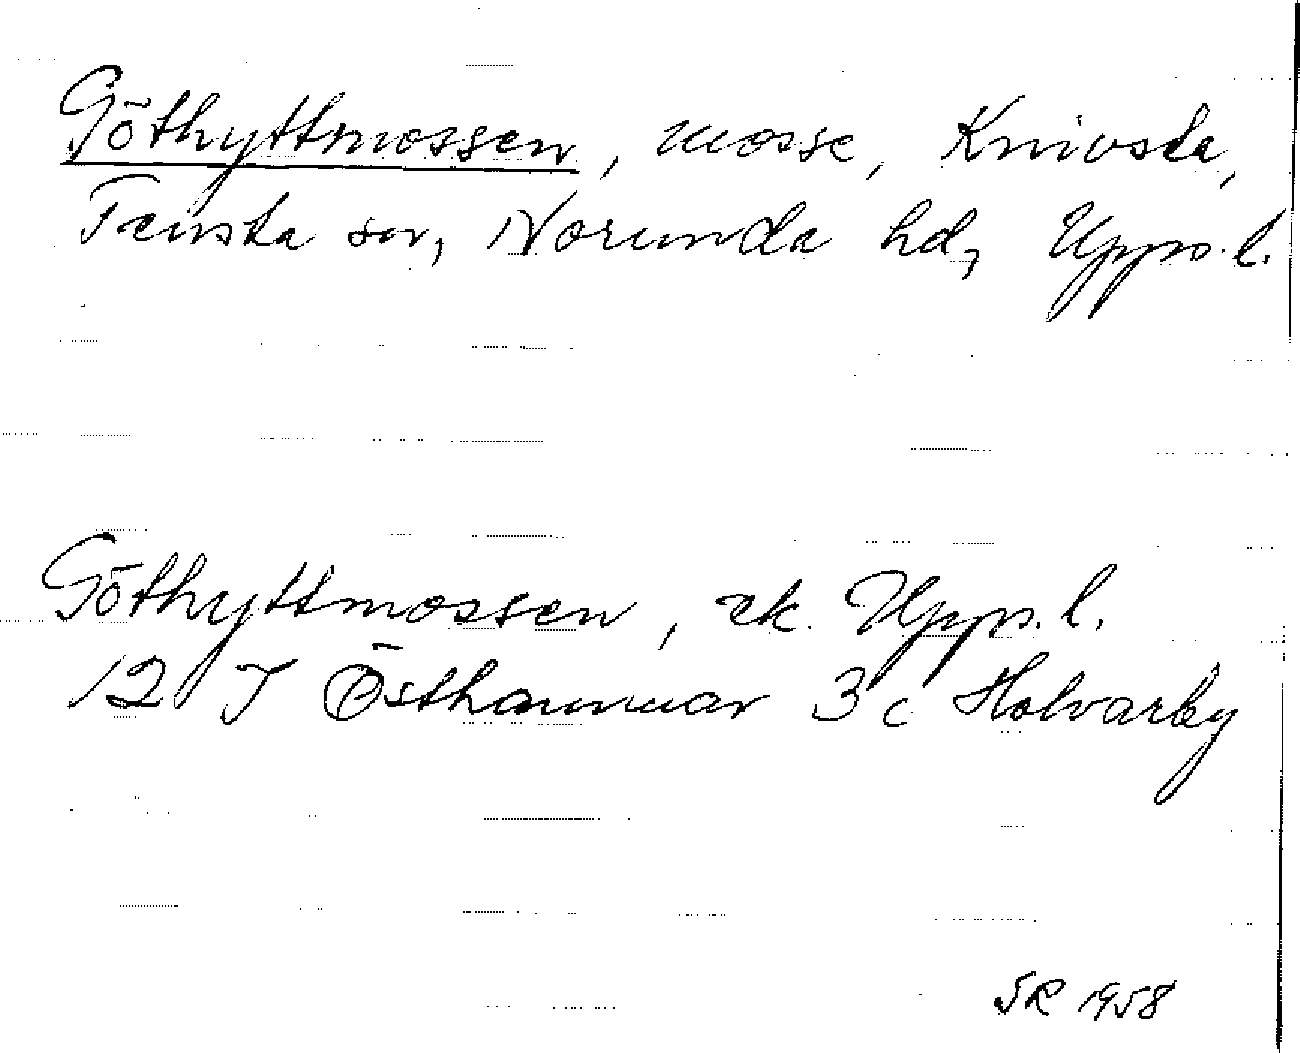 Göthyttmossen, mosse, Knivsta,
Tensta sn, Norunda hd, Upps. l.
Göthyttmossen, ek. Upps. l.
12 I Östhammar 3c Holvarby
SR 1958